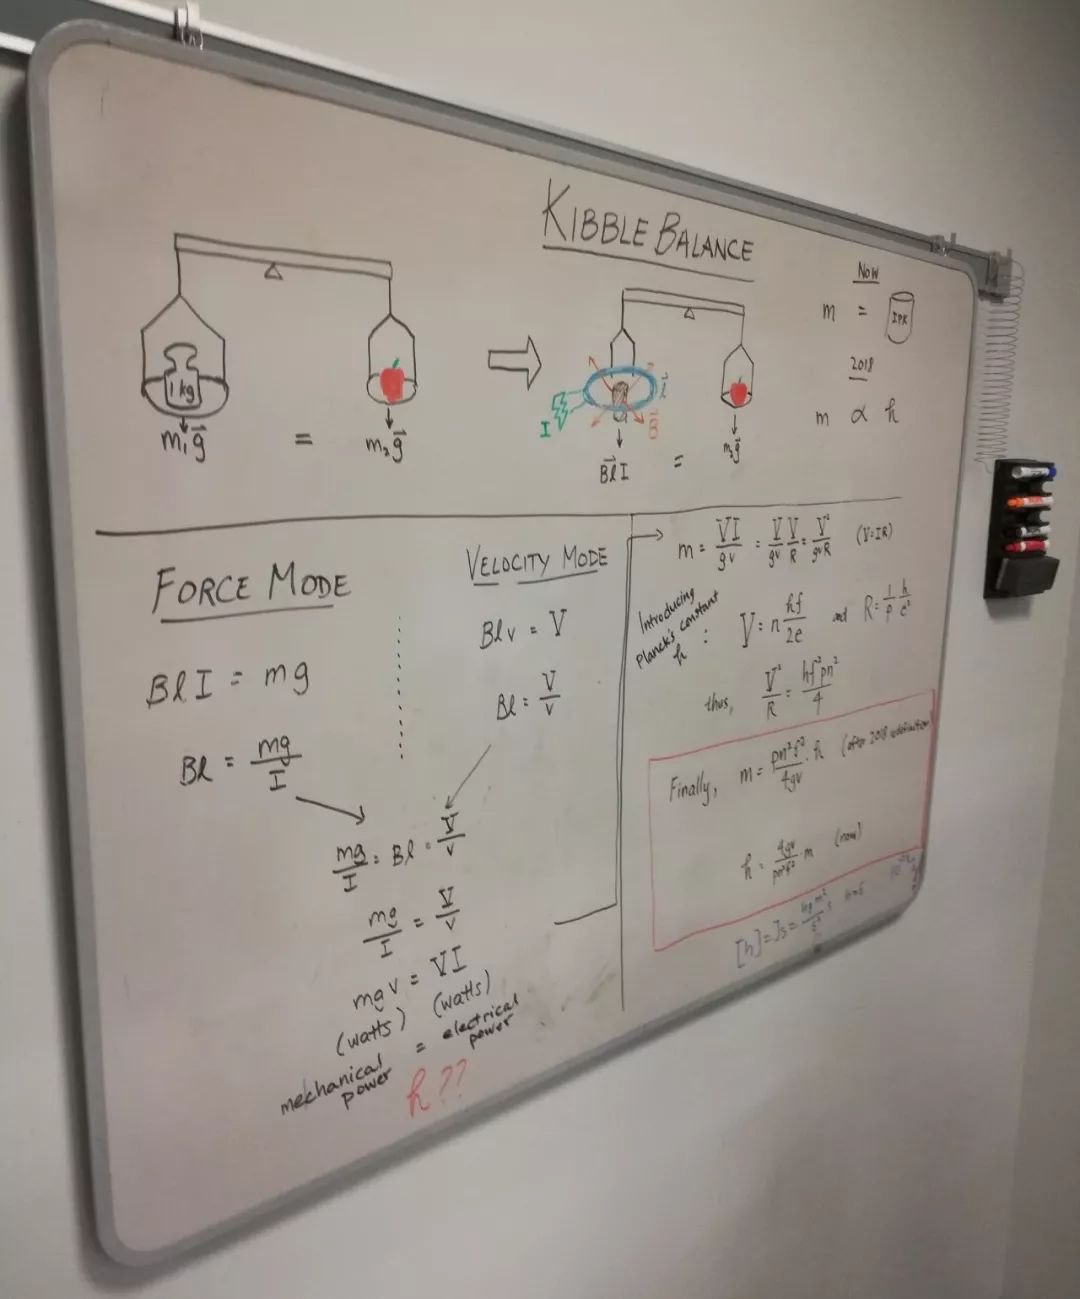 KIBBLE BALANCE
1 kg
m₁g⃗ = m₂g⃗
I
l⃗
B⃗
B⃗lI = m₂g⃗
Now
m = IPK
2018
m ∝ h
FORCE MODE
BlI = mg
Bl = mg/I
VELOCITY MODE
Blv = V
Bl = V/v
mg/I = Bl = V/v
mg/I = V/v
mgv = VI
(watts) (watts)
mechanical power = electrical power
h??
m = VI/gv = V/gv V/R = V²/gvR (V=IR)
Introducing
Planck's constant
h : V = n hf/2e and R = 1/p h/e²
thus, V²/R = hf²pn²/4
Finally, m = pn²f²/4gv · h (after 2018 redefinition)
h = 4gv/pn²f² · m (now)
[h] = Js = kg m²/s² s